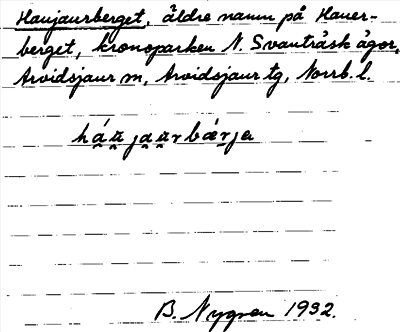 Haujaurberget, äldre namn på Hauer-
berget, kronoparken N. Svanträsk ägor,
Arvidsjaur sn, Arvidsjaur tg, Norrb. l.
B. Nygren 1932.